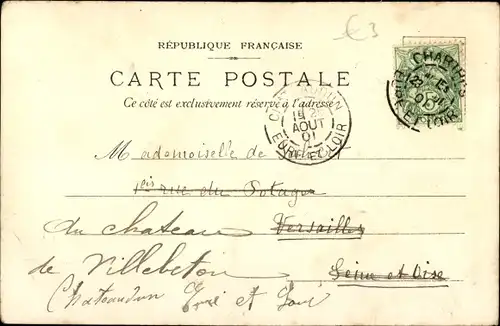 €3
RÉPUBLIQUE FRANÇAISE
CARTE POSTALE
Ce côté est exclusivement réservé à l'adresse
CHARTRES
EURE-ET-LOIR
AOUT
01
EURE-ET-LOIR
Mademoiselle de
1 bis rue du Potager
du chateau Versailles
de Villebeton Seine et Oise
Chateaudun Eure et Loir